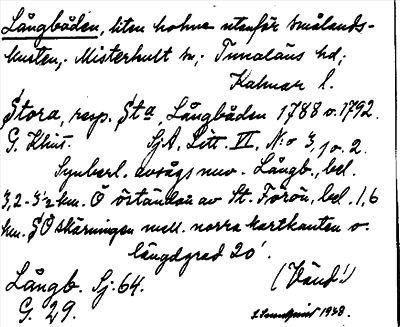 Långbåden, liten holme utanför Smålands-
kusten,- Misterhult sn; Tunaläns hd;
Kalmar l.
Stora, resp. Sta, Långbåden 1788 o. 1792.
G. Klint. SjA. Litt. VI. N:o 3, 1 o. 2.
Synberl. avsågs nuv. Långb., bel.
3,2-3½ km. Ö öständan av St. Forön, bel. 1,6
km. SÖ skärningen mell. norra kartkanten o.
längdgrad 20'.
Långb. Sj. 64. (Vänd!)
G. 29. 1938.